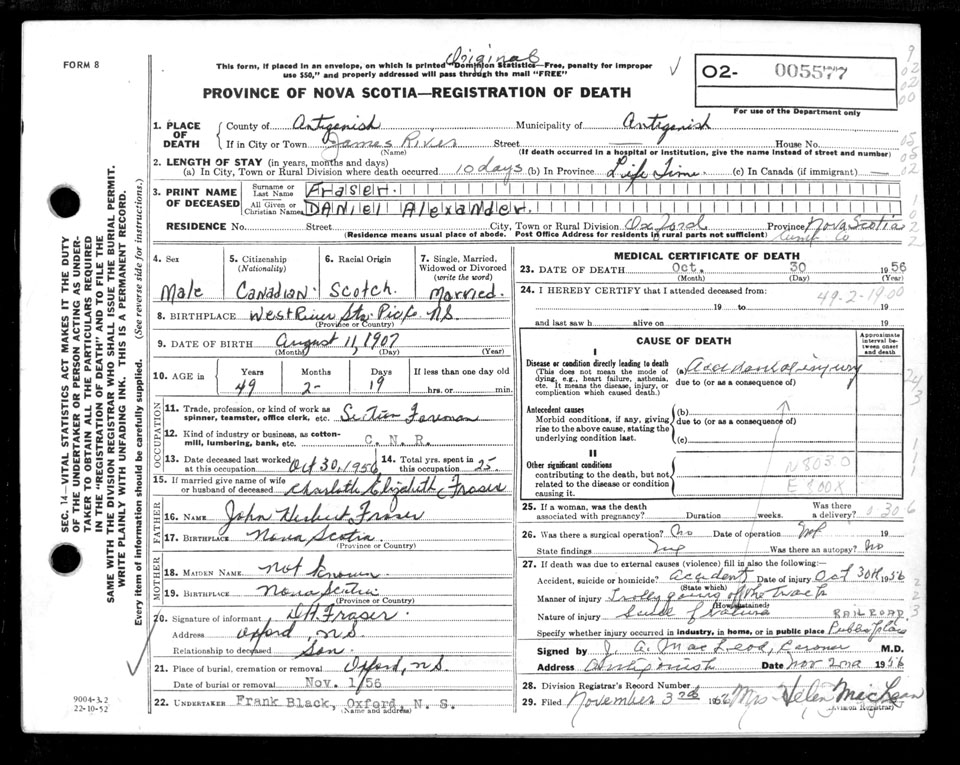 FORM 8
Original
This form, if placed in an envelope, on which is printed "Dominion Statistics—Free, penalty for improper
use $50," and properly addressed will pass through the mail "FREE"
PROVINCE OF NOVA SCOTIA—REGISTRATION OF DEATH
02- 005577
For use of the Department only
SEC. 14—VITAL STATISTICS ACT MAKES IT THE DUTY
OF THE UNDERTAKER OR PERSON ACTING AS UNDER-
TAKER TO OBTAIN ALL THE PARTICULARS REQUIRED
IN THE "REGISTRATION OF DEATH" AND TO FILE THE
SAME WITH THE DIVISION REGISTRAR WHO SHALL ISSUE THE BURIAL PERMIT.
WRITE PLAINLY WITH UNFADING INK. THIS IS A PERMANENT RECORD.
Every item of information should be carefully supplied. (See reverse side for instructions.)
1. PLACE OF DEATH
County of Antigonish Municipality of Antigonish
If in City or Town James River Street — House No.
(Name) (If death occurred in a hospital or institution, give the name instead of street and number)
2. LENGTH OF STAY (in years, months and days)
(a) In City, Town or Rural Division where death occurred 10 days (b) In Province Life Time (c) In Canada (if immigrant) —
3. PRINT NAME OF DECEASED
Surname or Last Name Fraser.
All Given or Christian Names DANIEL Alexander.
RESIDENCE No. Street City, Town or Rural Division Oxford Province Nova Scotia
(Residence means usual place of abode. Post Office Address for residents in rural parts not sufficient) Cumb. Co
4. Sex Male
5. Citizenship (Nationality) Canadian
6. Racial Origin Scotch.
7. Single, Married, Widowed or Divorced (write the word) Married.
8. BIRTHPLACE West River Sta. Pic. Co. N.S.
(Province or Country)
9. DATE OF BIRTH August 11, 1907
(Month) (Day) (Year)
10. AGE in Years 49 Months 2- Days 19 If less than one day
hrs. or min.
OCCUPATION
11. Trade, profession, or kind of work as spinner, teamster, office clerk, etc. Section Foreman
12. Kind of industry or business, as cotton-mill, lumbering, bank, etc. C. N. R.
13. Date deceased last worked at this occupation Oct 30, 1956
14. Total yrs. spent in this occupation 25.
15. If married give name of wife or husband of deceased Charlotte Elizabeth Fraser
FATHER
16. NAME John Herbert Fraser
17. BIRTHPLACE Nova Scotia.
(Province or Country)
MOTHER
18. MAIDEN NAME not known.
19. BIRTHPLACE Nova Scotia
(Province or Country)
20. Signature of informant D H Fraser.
Address Oxford, N.S.
Relationship to deceased Son
21. Place of burial, cremation or removal Oxford, N.S.
Date of burial or removal Nov. 1/56
22. UNDERTAKER Frank Black, Oxford, N. S.
(Name and address)
9004-3.2
22-10-52
MEDICAL CERTIFICATE OF DEATH
23. DATE OF DEATH Oct. 30 1956
(Month) (Day) (Year)
24. I HEREBY CERTIFY that I attended deceased from:
49-2-19 00
19 to 19
and last saw h alive on 19
CAUSE OF DEATH
Approximate interval between onset and death
I
Disease or condition directly leading to death
(This does not mean the mode of dying, e.g., heart failure, asthenia, etc. It means the disease, injury, or complication which caused death.)
(a) Accidental injury
due to (or as a consequence of)
Antecedent causes
Morbid conditions, if any, giving rise to the above cause, stating the underlying condition last.
(b)
due to (or as a consequence of)
(c)
II
Other significant conditions
contributing to the death, but not related to the disease or condition causing it.
N 803 0
E 800X
25. If a woman, was the death associated with pregnancy? Duration weeks. Was there a delivery?
26. Was there a surgical operation? No Date of operation 19
State findings Was there an autopsy? No
27. If death was due to external causes (violence) fill in also the following:
Accident, suicide or homicide? accident Date of injury Oct 30th 1956
(State which)
Manner of injury Trolly going off the track
(How sustained)
Nature of injury
RAILROAD
Specify whether injury occurred in industry, in home, or in public place Public place
Signed by J. A. MacLeod, Coroner M.D.
Address Antigonish Date Nov 2nd 1956
28. Division Registrar's Record Number
29. Filed November 3rd 1956 Mrs Helen MacLean
(Division Registrar)